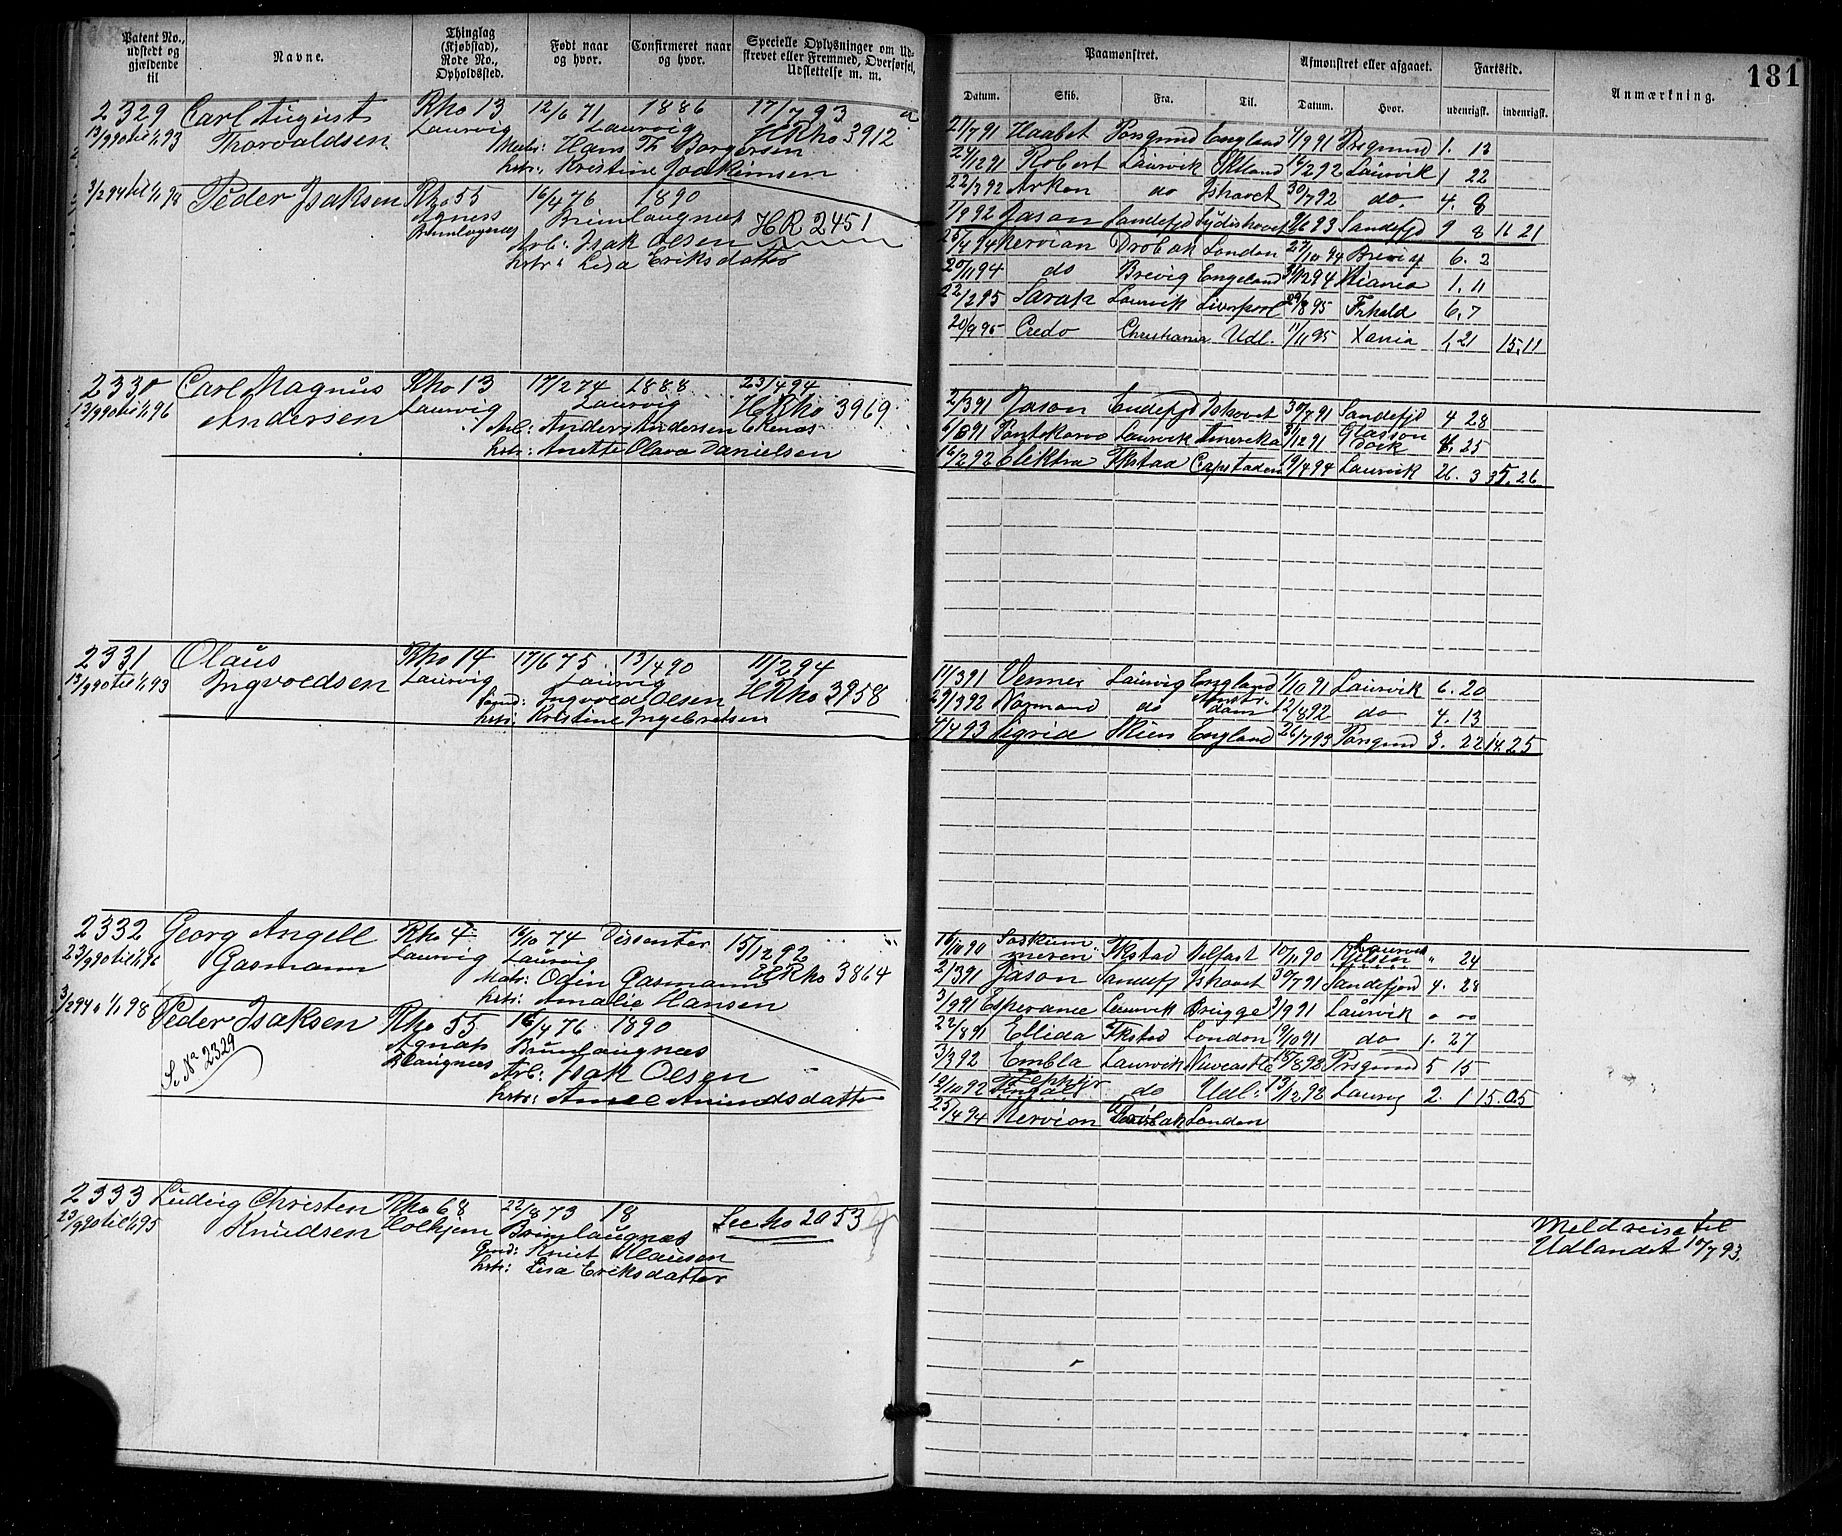 Patent No., udstedt og gjældende til
Navne.
Thinglag (Kjøbstad), Rode No., Opholdssted.
Født naar og hvor.
Confirmeret naar og hvor.
Specielle Oplysninger om Udskrevet eller Fremmed, Overførsel, Udslettelse m. m.
Paamønstret.
Datum.
Skib.
Fra.
Til.
Afmønstret eller afgaaet.
Datum.
Hvor.
Fartstid.
udenrigsk.
indenrigsk.
Anmærkning.
181
2329 Carl August Rno 13 12/6 71 1886 17/7 93
13/9 90 til 1/1 93 Thorvaldsen Laurvig Laurvig HRno 3912
Hans Th Borgersen
hstr: Kristine Joakimsen
3/2 94 til 1/1 98 Peder Isaksen Rno 55 16/4 76 1890
Agness Brunlaugnæs HR 2451
Brunlaugnæs Arb: Isak Olsen
hstr: Lisa Eriksdatter
21/7 91 Haabet Porsgrund England 1/9 91 Prsgrund 1. 13
24/12 91 Robert Laurvik 14/2 92 Laurvik 1 22
22/3 92 Arken do Ishavet 30/7 92 do 4. 8
1/9 92 Jason Sandefjd Sydishavet 9/6 93 Sandefjd 9 8 11 21
25/4 94 Kervian Drobak London 27/10 94 Brevig 6. 2
20/11 94 do Brevig England 31/12 94 Xiania 1. 11
22/2 95 Sarah Laurvik Liverpool 29/8 95 Frhald 6. 7
20/9 95 Credo Christiania Udl. 11/11 95 Xania 1. 21 15. 11
2330 Carl Magnus Rno 13 17/2 74 1888 23/4 94
13/9 90 til 1/1 96 Andersen Laurvig Laurvig HRno 3969
Arb: Anders Andersen Ekenæs
hstr: Anette Olava Danielsen
2/3 91 Jason Sandefjd Ishavet 30/7 91 Sandefjd 4 28
6/8 91 Laurvik Amerika 31/12 91 Glasson Dock 4. 25
16/2 92 Elektra Fkstad Capstaden 19/4 94 Laurvik 26. 3 35. 26
2331 Olaus Rno 14 17/6 75 13/4 90 11/2 94
13/9 90 til 1/1 93 Ingvoldsen Laurvig Laurvig HRno 3958
Ingvold Olsen
hstr: Kristine Ingebretsen
11/3 91 Venner Laurvig England 1/10 91 Laurvik 6. 20
29/3 92 Normand do Amsterdam 12/8 92 do 4. 13
4/4 93 Sigrid Skien England 26/7 93 Porsgrund 3. 22 14. 25
2332 Georg Angell Rno 4 16/10 74 Dissenter 15/12 92
23/9 90 til 1/1 96 Gasmann Laurvig Laurvig HRno 3864
Matr: Odin Gasmann
hstr: Amalie Hansen
3/2 94 til 1/1 98 Peder Isaksen Rno 55 16/4 76 1890
Se No 2329
Agnæs Brunlaugnæs
Blaugnæs Arb: Isak Olsen
hstr: Anne Amundsdatter
16/10 90 Fkstad Belfast 10/12 90 Laurvik " 24
2/3 91 Jason Sandefj Ishavet 30/7 91 Sandefjord 4. 28
3/9 91 Esperance Laurvik Brügge 3/9 91 Laurvik " "
22/8 91 Ellida Fkstad London 19/10 91 do 1. 27
3/3 92 Embla Laurvik Newcastle 18/8 92 Prsgrund 5 15
12/10 92 do Udl: 13/12 92 Laurvig 2. 1 15. 05
25/4 94 Kervian Drobak London
2333 Ludvig Christen Rno 68 22/8 73 18 See No 2053
23/9 90 til 1/1 95 Knudsen Holhjem Brunlaugnæs
Gmd: Knut Klausen
hstr: Lisa Eriksdatter
Meldreise til
Udlandet 10/7 93.